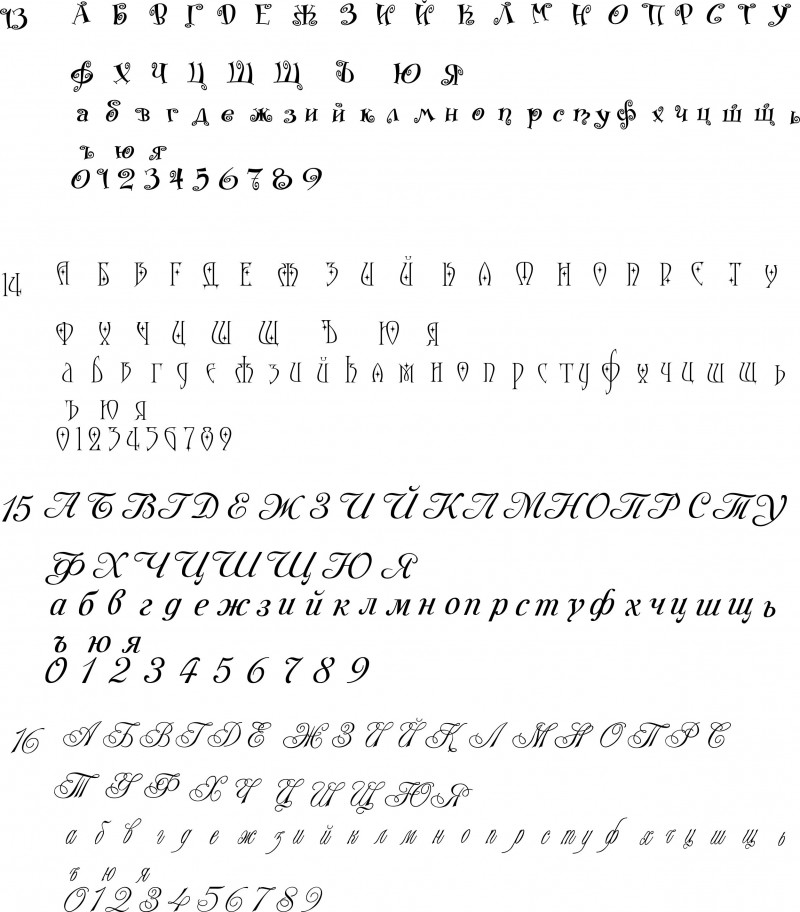 13 А Б В Г Д Е Ж З И Й К Л М Н О П Р С Т У
Ф Х Ч Ц Ш Щ Ъ Ю Я
а б в г д е ж з и й к л м н о п р с т у ф х ч ц ш щ ь
ъ ю я
0 1 2 3 4 5 6 7 8 9
14 А Б В Г Д Е Ж З И Й К Л М Н О П Р С Т У
Ф Х Ч Ц Ш Щ Ъ Ю Я
а б в г д е ж з и й к л м н о п р с т у ф х ч ц ш щ ь
ъ ю я
0 1 2 3 4 5 6 7 8 9
15 А Б В Г Д Е Ж З И Й К Л М Н О П Р С Т У
Ф Х Ч Ц Ш Щ Ю Я
а б в г д е ж з и й к л м н о п р с т у ф х ч ц ш щ ь
ъ ю я
0 1 2 3 4 5 6 7 8 9
16 А Б В Г Д Е Ж З И Й К Л М Н О П Р С
Т У Ф Х Ч Ц Ш Щ Ю Я
а б в г д е ж з и й к л м н о п р с т у ф х ч ц ш щ ь
ъ ю я
0 1 2 3 4 5 6 7 8 9